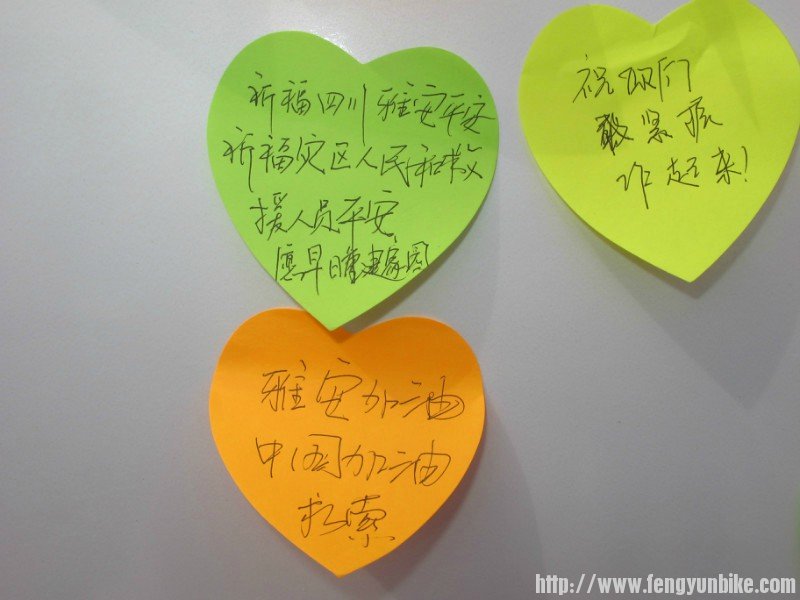 祈福四川雅安平安
祈福灾区人民和救
援人员平安
愿早日重建家园
祝你们
紧振
作起来!
雅安加油
中国加油
索
http://www.fengyunbike.com